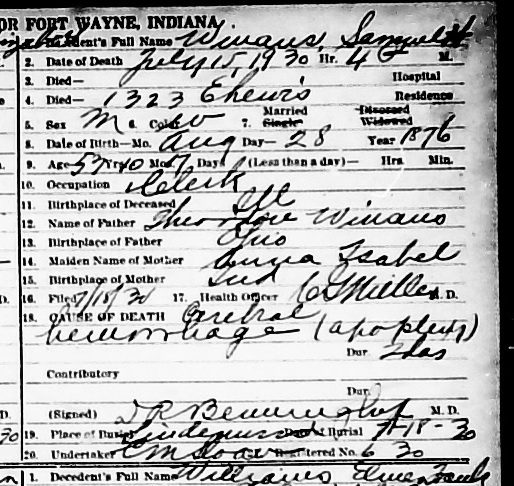 OR FORT WAYNE, INDIANA.
1. Decedent's Full Name Winans, Samuel H
2. Date of Death July 15, 1930 Hr. 4 M.
3. Died— Hospital
4. Died— 1323 Residence
5. Sex M 6. Color w 7. Married Single Divorced Widowed
8. Date of Birth—Mo. Aug Day— 28 Year 1876
9. Age 53 Yrs 10 Mos 17 Days (Less than a day)— Hrs. Min.
10. Occupation Clerk
11. Birthplace of Deceased Ill
12. Name of Father Theodore Winans
13. Birthplace of Father Ohio
14. Maiden Name of Mother Anna Isabel
15. Birthplace of Mother Ind
16. Filed 7/18/30 17. Health Officer Miller M. D.
18. CAUSE OF DEATH Cerebral
hemorrhage (apoplexy)
Dur. 2 das
Contributory
Dur.
(Signed) M. D.
19. Place of Burial Lindenwood Date of Burial 7-18-30
20. Undertaker Registered No. 6 30
1. Decedent's Full Name Williams,